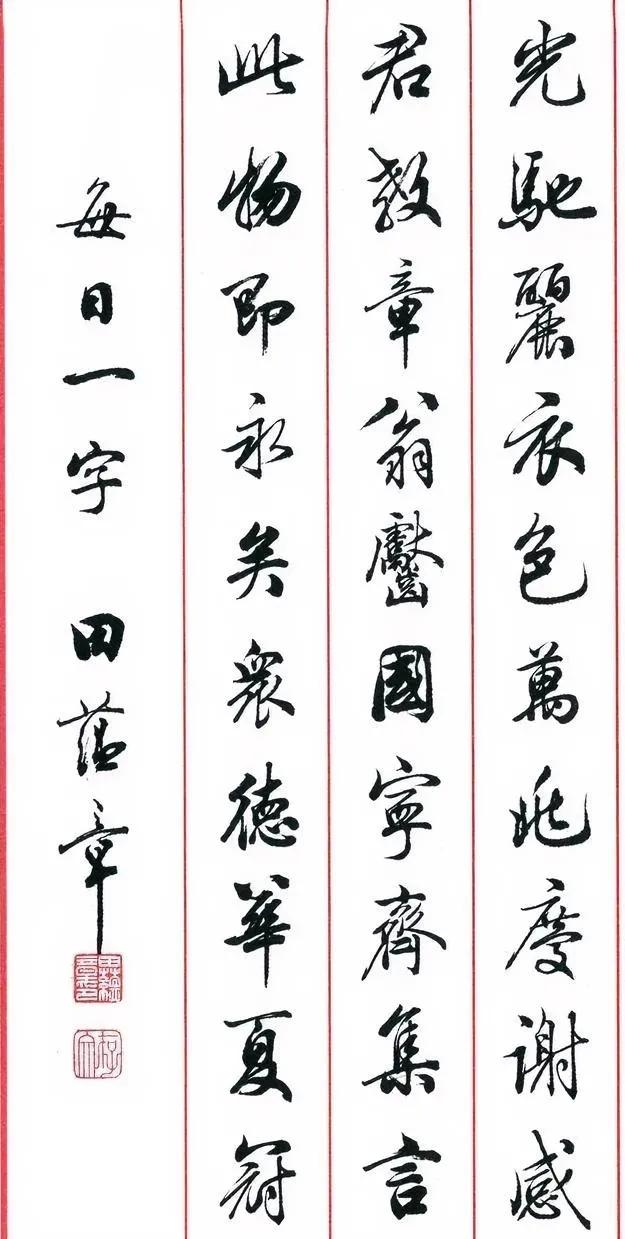 光馳麗衣色萬兆慶謝感
君教章翁齾國寧齊集言
此物即永矣衆德華夏冠
每日一字 田蕴章